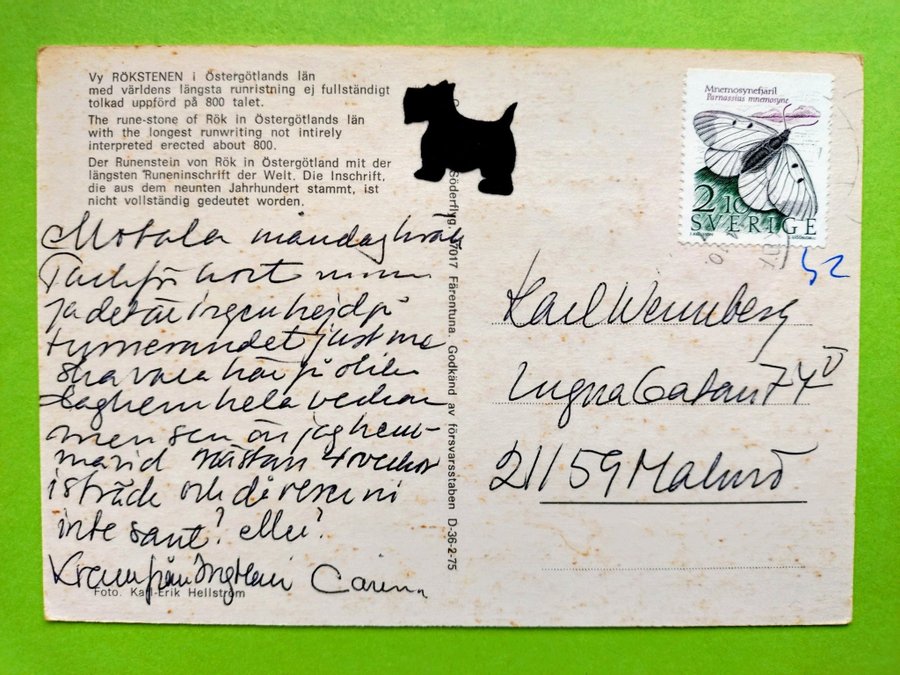 Vy RÖKSTENEN i Östergötlands län
med världens längsta runristning ej fullständigt
tolkad uppförd på 800 talet.
The rune-stone of Rök in Östergötlands län
with the longest runwriting not intirely
interpreted erected about 800.
Der Runenstein von Rök in Östergötland mit der
längsten Runeninschrift der Welt. Die Inschrift,
die aus dem neunten Jahrhundert stammt, ist
nicht vollständig gedeutet worden.
Motala måndagkväll
Tack för kort
ja det är ingen hejd på
turnerandet just nu
ska vara här på olika
daghem hela veckan
men sen är jag hem-
mavid nästan 4 veckor
i sträck och då reser ni
inte sant? eller?
Kram från Carin
Foto. Karl-Erik Hellström
Söderflyg, 17017 Färentuna. Godkänd av försvarsstaben D-36-2-75
Mnemosynefjäril
Parnassius mnemosyne
2.10
SVERIGE
52
Karl Wennberg
Gatan 74
211 59 Malmö